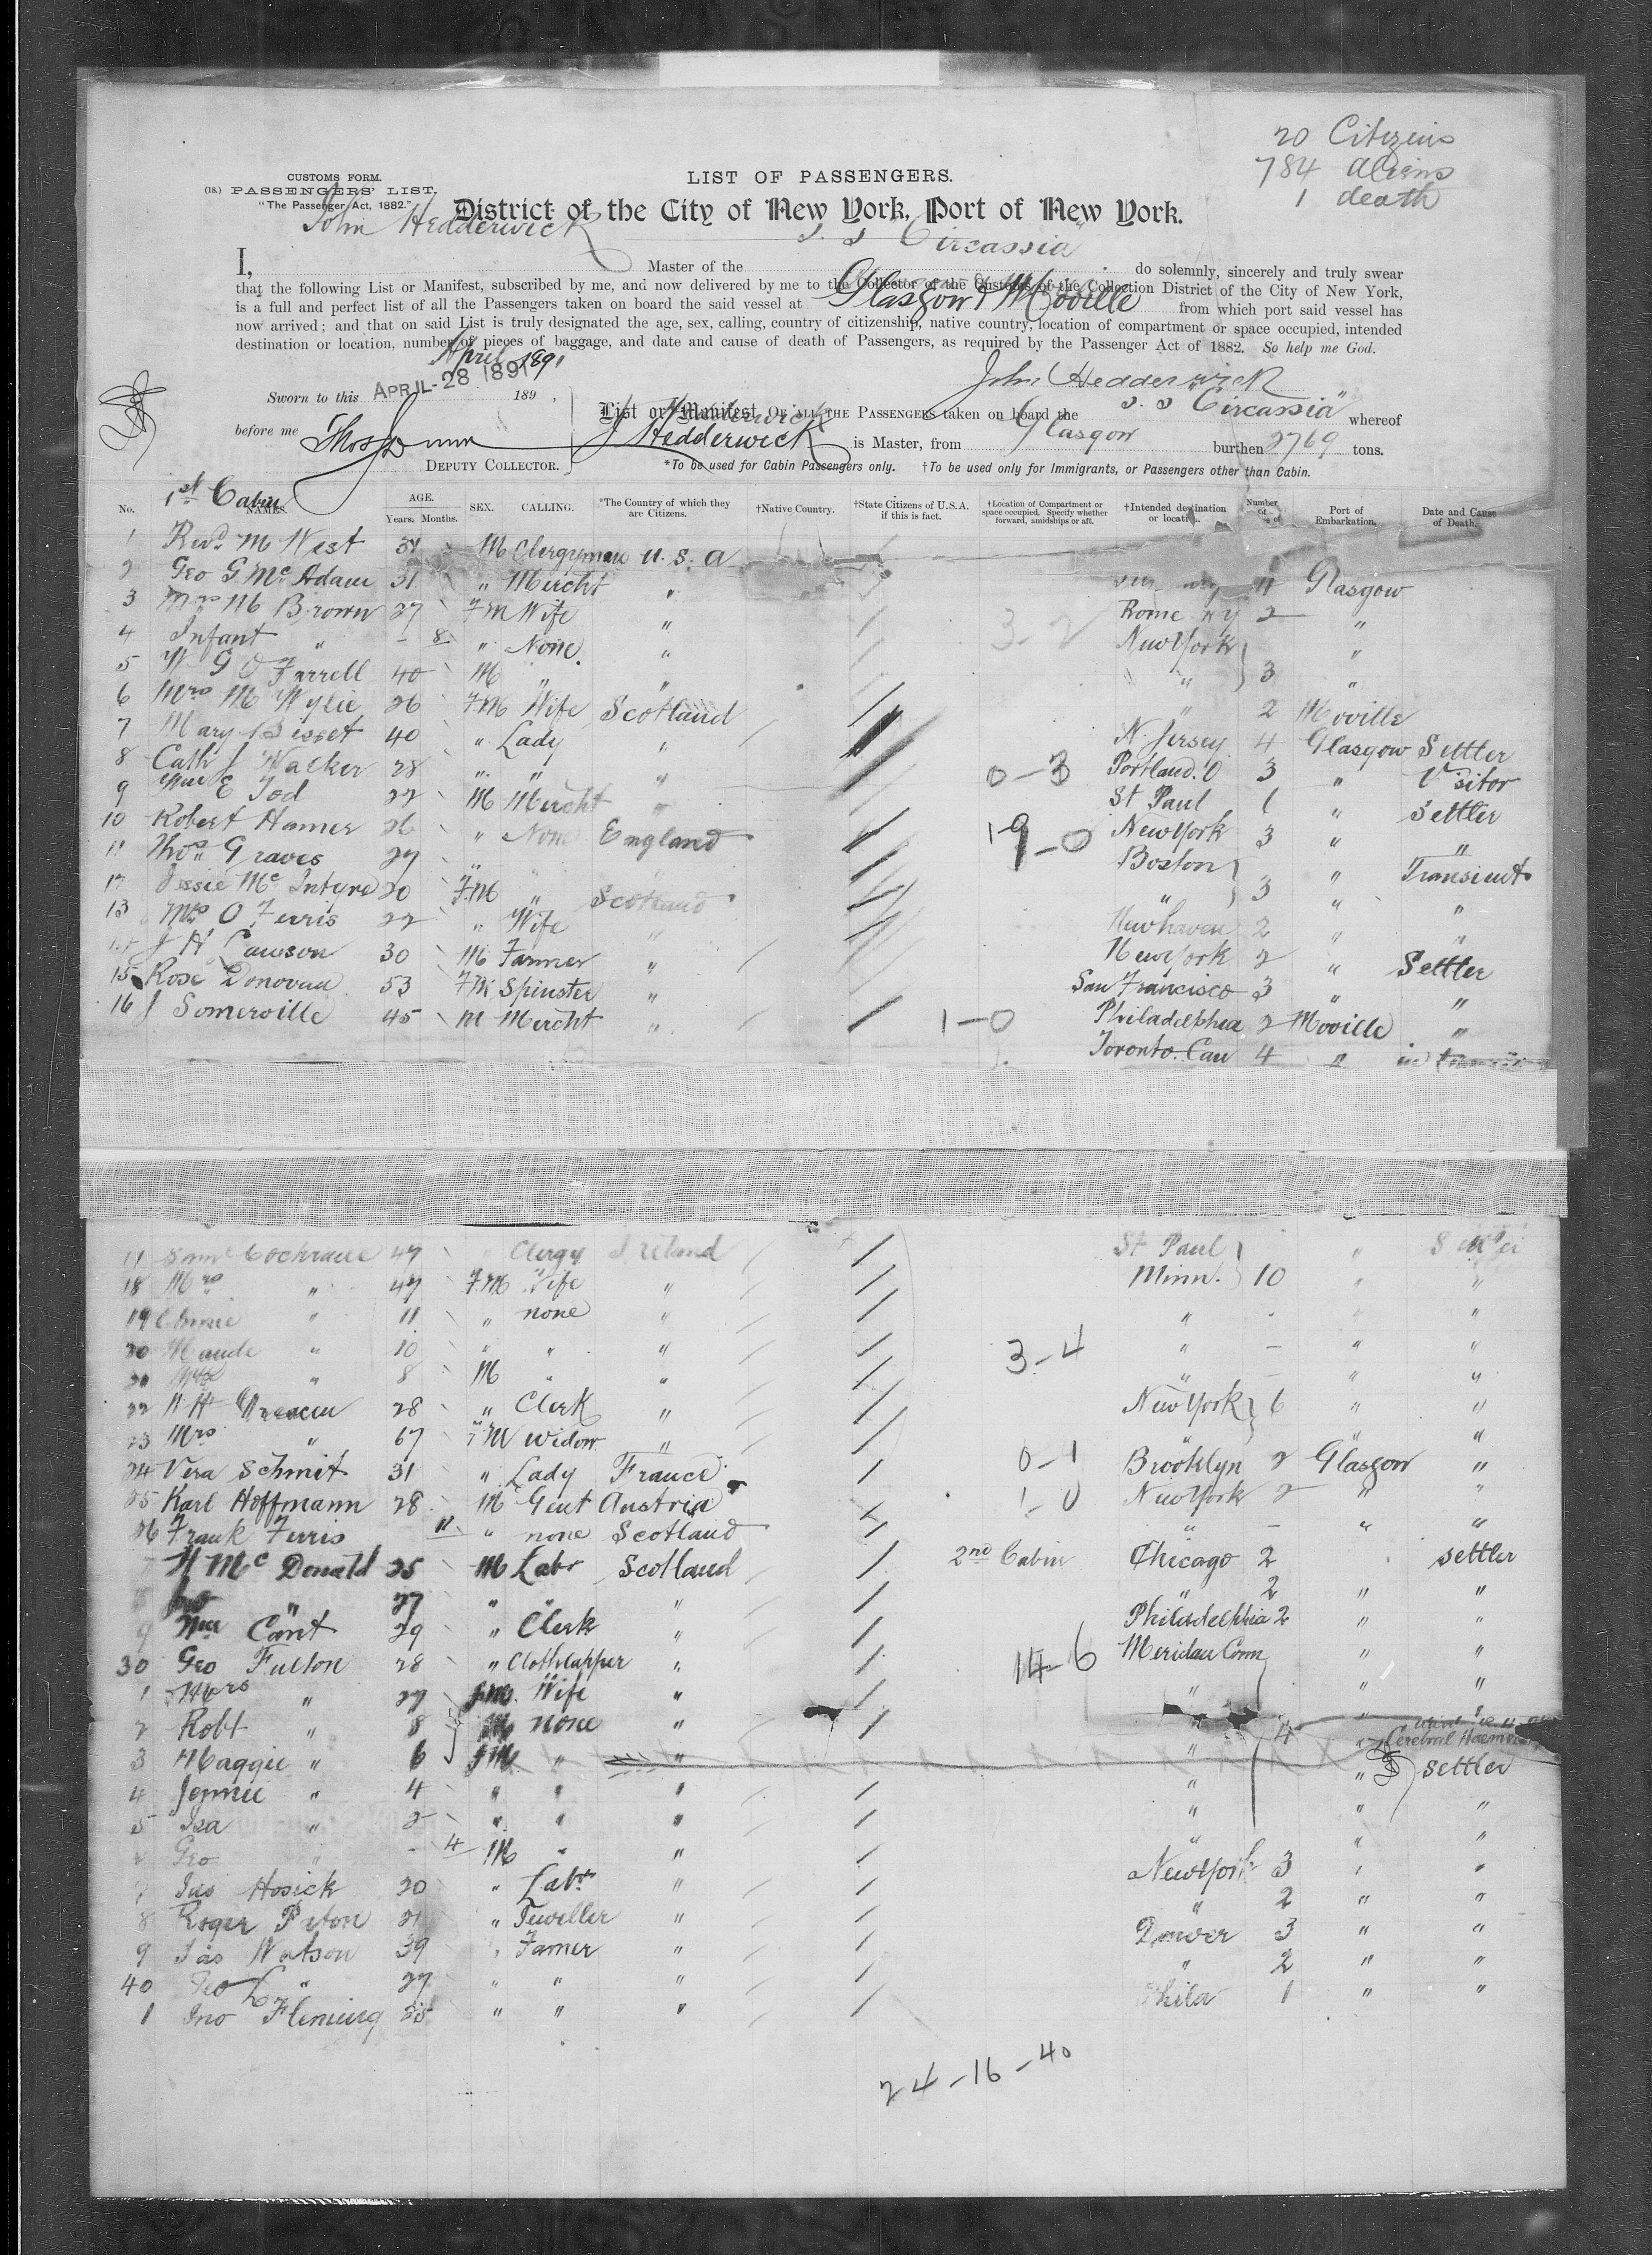 20 Citizens
784 Aliens
1 death
CUSTOMS FORM.
(18.) PASSENGERS' LIST.
"The Passenger Act, 1882."
LIST OF PASSENGERS.
District of the City of New York, Port of New York.
I, John Hedderwick Master of the S. S Circassia" do solemnly, sincerely and truly swear
that the following List or Manifest, subscribed by me, and now delivered by me to the Collector of the Customs of the Collection District of the City of New York,
is a full and perfect list of all the Passengers taken on board the said vessel at Glasgow & Moville from which port said vessel has
now arrived; and that on said List is truly designated the age, sex, calling, country of citizenship, native country, location of compartment or space occupied, intended
destination or location, number of pieces of baggage, and date and cause of death of Passengers, as required by the Passenger Act of 1882. So help me God.
April 1891
John Hedderwick
Sworn to this APRIL-28 1891 189 ,
List or Manifest OF ALL THE PASSENGERS taken on board the S. S "Circassia" whereof
before me Thos Dunn
J Hedderwick is Master, from Glasgow burthen 2769 tons.
DEPUTY COLLECTOR.
*To be used for Cabin Passengers only. †To be used only for Immigrants, or Passengers other than Cabin.
1st Cabin
No. NAMES. AGE. Years. Months. SEX. CALLING. *The Country of which they are Citizens. †Native Country. †State Citizens of U.S.A. if this is fact. †Location of Compartment or space occupied. Specify whether forward, amidships or aft. †Intended destination or location. Number of Port of Embarkation. Date and Cause of Death.
1 Revd. M West M Clergyman U.S.A
2 Geo G Mc Adam 31 " Mercht " 11 Glasgow
3 Mrs M Brown 27 FM Wife " Rome NY 2 "
4 Infant " - 8 " None " New York "
5 W G O Farrell 40 M " " " 3 "
6 Mrs M Wylie 26 FM Wife Scotland " 2 Moville
7 Mary Bisset 40 " Lady " N. Jersey 4 Glasgow Settler
8 Cath J Walker 28 " " " 0-3 Portland. O 3 " Visitor
9 Wm E Tod 22 M Mercht " St Paul 1 " Settler
10 Robert Hamer 26 " None England 19-0 New York 3 " "
11 Thos Graves 27 " " Boston " Transient
12 Jessie Mc Intyre 20 FM " Scotland " 3 " "
13 Mrs O Ferris 22 " Wife " Newhaven 2 " "
14 J H Lawson 30 M Farmer " New York 2 " Settler
15 Rose Donovan 53 FM Spinster " San Francisco 3 " "
16 J Somerville 45 M Mercht " 1-0 Philadelphia 2 Moville "
Toronto. Can 4 " in
17 Saml Cochrane 47 Clergy Ireland St Paul "
18 Mrs " 47 FM Wife " Minn. 10 " "
19 " 11 " none " " - " "
20 Maude " 10 " " " 3-4 " - " "
21 " 8 M " " " - " "
22 28 " Clerk " New York 6 " "
23 Mrs " 67 FM Widow " " " "
24 Vera Schmit 31 " Lady France 0-1 Brooklyn 2 Glasgow "
25 Karl Hoffmann 28 M Gent Austria 1-0 New York 2 " "
26 Frank Ferris 11 " none Scotland " - " "
7 H Mc Donald 25 M Labr Scotland 2nd Cabin Chicago 2 settler
8 " 27 " " " " 2 " "
9 Wm Cant 29 " Clerk " Philadelphia 2 " "
30 Geo Fulton 28 " Clothlapper " 14-6 Meridan Conn " "
1 Mrs " 27 FM. Wife " " " "
2 Robt " 8 M none " " 4 "
3 Maggie " 6 FM " " " " Cerebral
4 Jennie " 4 " " " " " settler
5 Isa " 2 " " " " " "
Geo " - 4 M " " " " "
7 Jas Hosick 20 " Labr " New York 3 " "
8 Roger Paton 21 " Jeweller " " 2 " "
9 Jas Watson 39 " Famer " Denver 3 " "
40 Geo L " 27 " " " " 2 " "
1 Jno Fleming 25 " " " Phila 1 " "
24-16-40